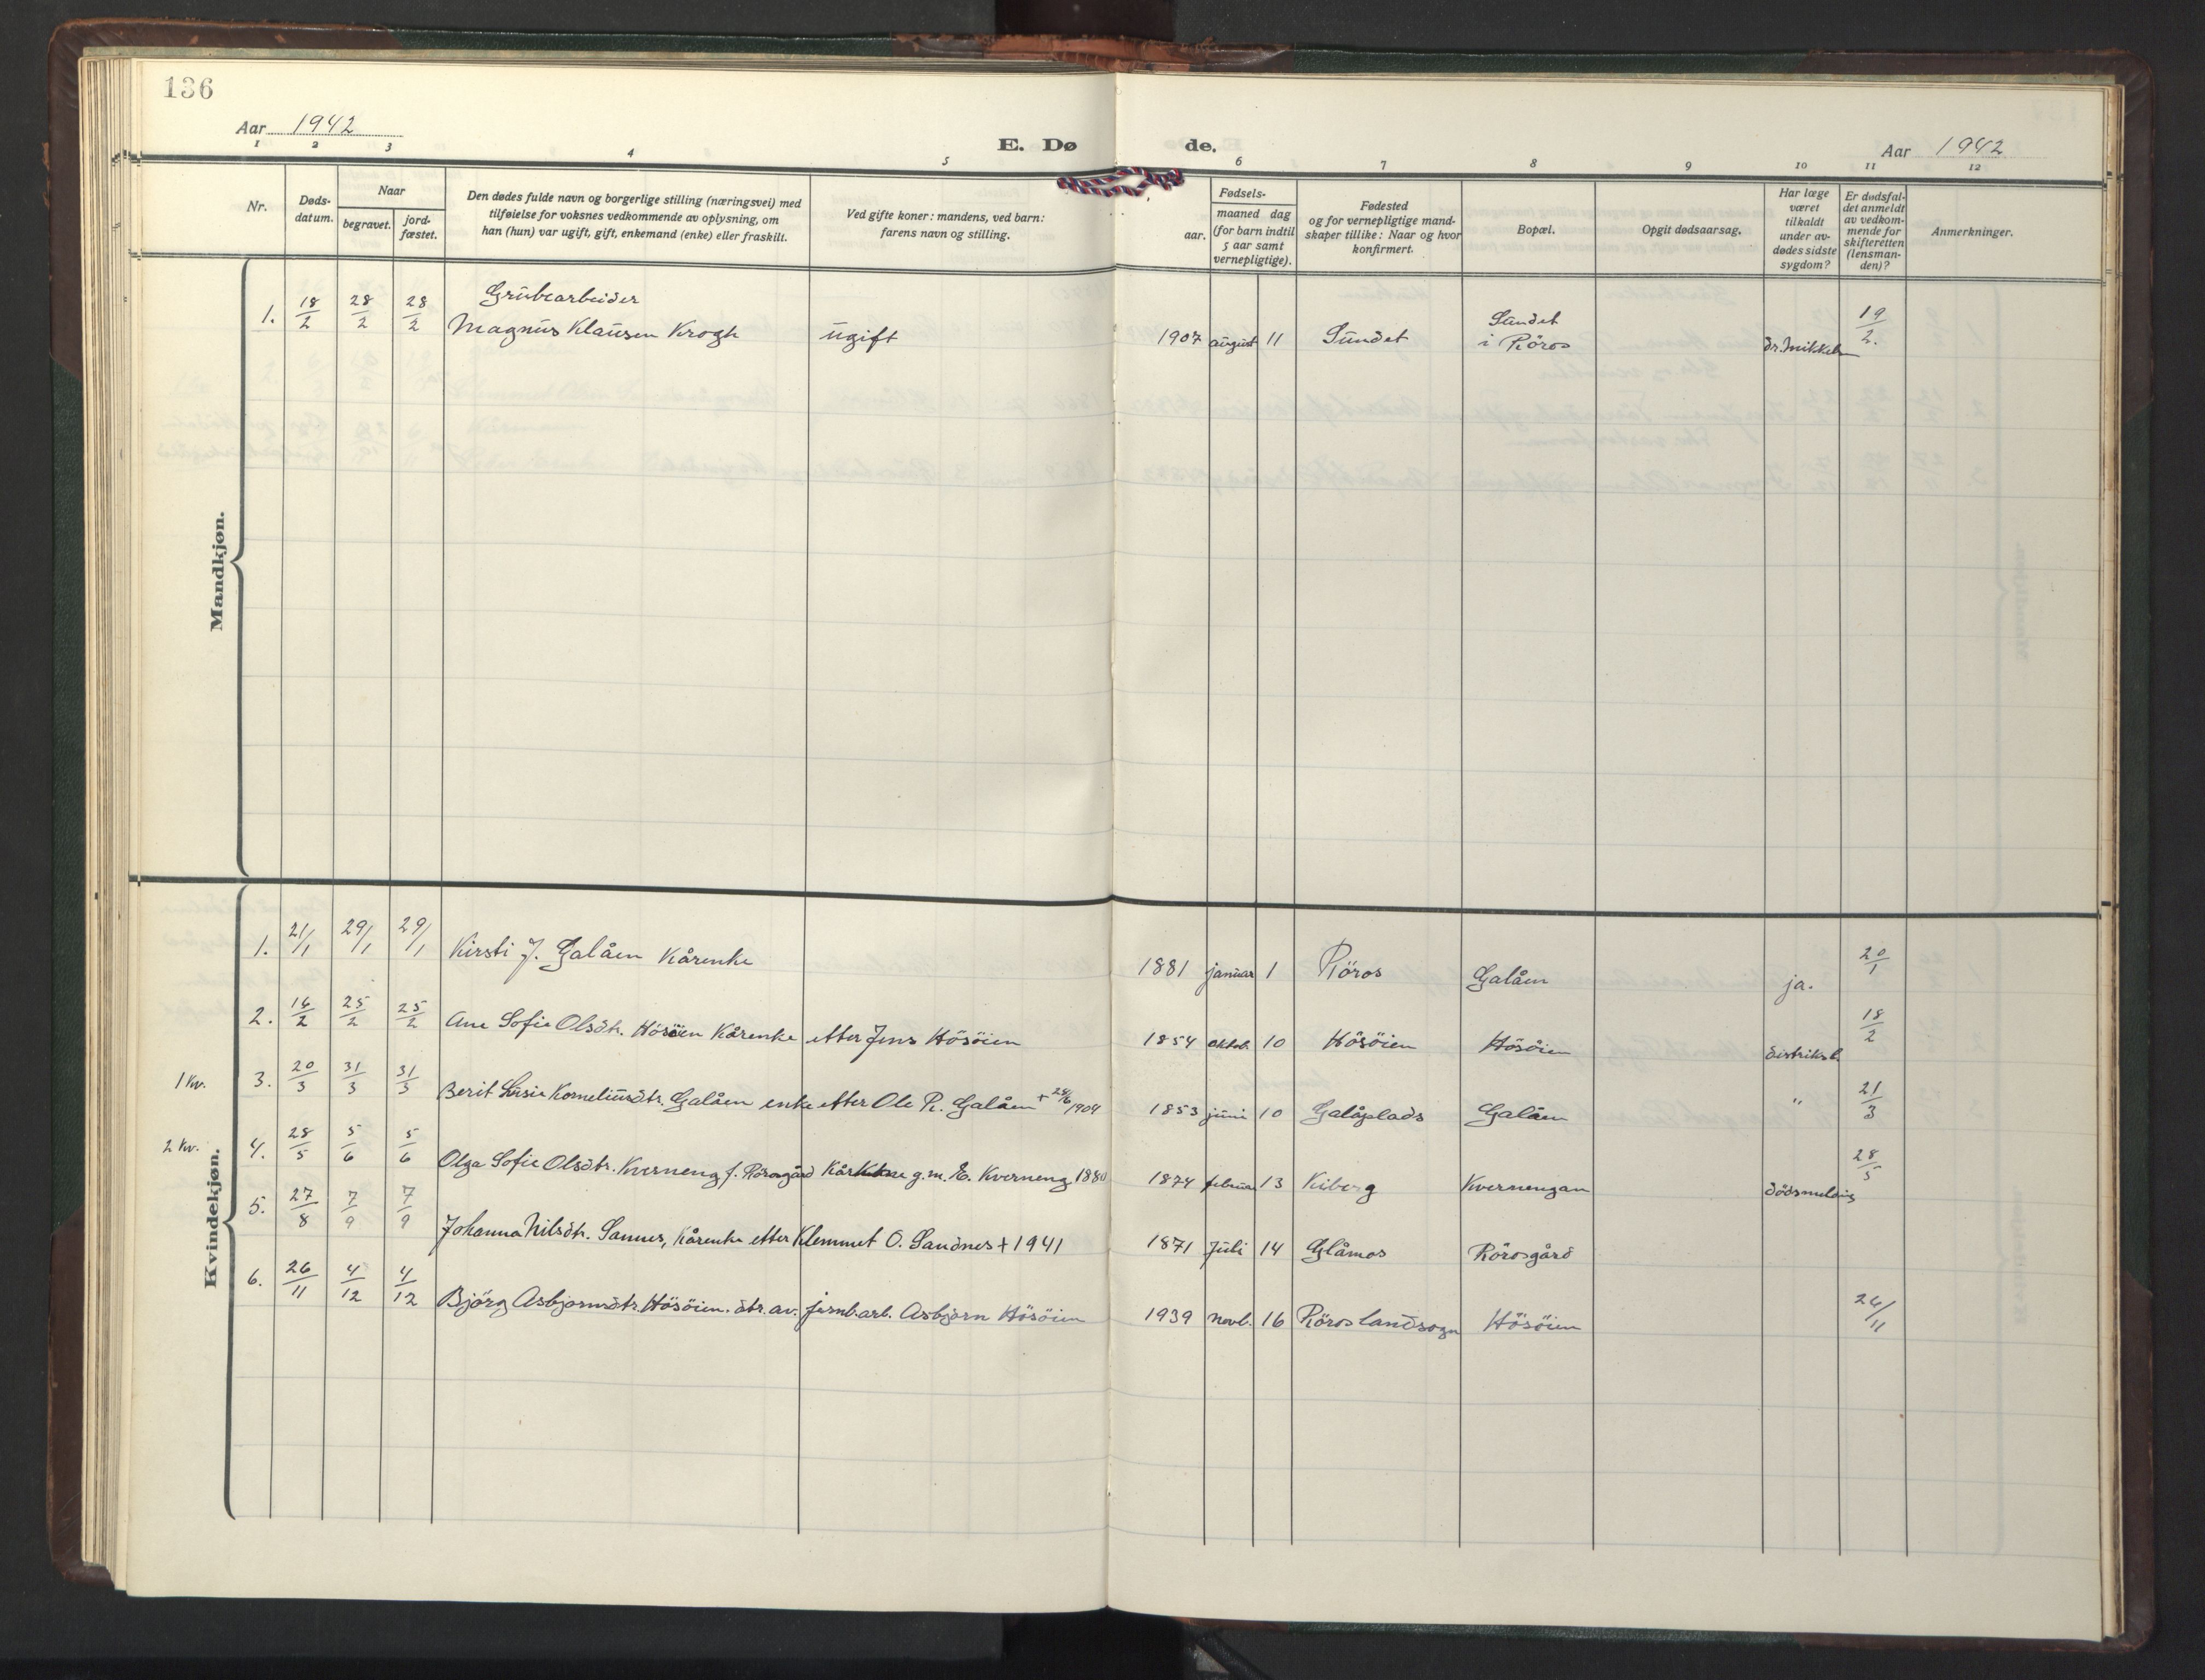 136
Aar 1942
E. Dø de.
Aar 1942
1 2 3 4 5 6 7 8 9 10 11 12
Nr.
Døds-datum.
Naar
begravet.
jord-fæstet.
Den dødes fulde navn og borgerlige stilling (næringsvei) med
tilføielse for voksnes vedkommende av oplysning, om
han (hun) var ugift, gift, enkemand (enke) eller fraskilt.
Ved gifte koner: mandens, ved barn:
farens navn og stilling.
Fødsels-
aar.
maaned dag
(for barn indtil
5 aar samt
vernepligtige).
Fødested
og for vernepligtige mand-
skaper tillike: Naar og hvor
konfirmert.
Bopæl.
Opgit dødsaarsag.
Har læge
været
tilkaldt
under av-
dødes sidste
sygdom?
Er dødsfal-
det anmeldt
av vedkom-
mende for
skifteretten
(lensman-
den)?
Anmerkninger.
Mandkjøn.
Grubearbeider
1. 18/2 28/2 28/2 Magnus Klausen Krogh ugift 1907 august 11 Sundet Sundet i Röros dr. Mikkels 19/2.
Kvindekjøn.
1. 21/1 29/1 29/1 Kirsti J. Galåen Kårenke 1881 januar 1 Röros Galåen ja. 20/1
2. 16/2 25/2 25/2 Ane Sofie Olsdtr. Hösöien Kårenke etter Jens Hösöien 1854 oktob. 10 Hösöien Hösöien distriksl. 18/2
1 Kv. 3. 20/3 31/3 31/3 Berit Lusie Korneliusdtr. Galåen enke etter Ole P. Galåen + 24/6 1904 1853 juni 10 Galåplads Galåen " 21/3
2 Kv. 4. 28/5 5/6 5/6 Olga Sofie Olsdtr. Kverneng f. Rörosgård Kår kone g.m. E. Kverneng 1880 1874 februar 13 Kiberg Kvernengan dödsmelding 28/5
5. 27/8 7/9 7/9 Johanna Nilsdtr. Sannes, Kårenke etter Klemmet O. Sandnes + 1941 1871 Juli 14 Glåmos Rörosgård
6. 26/11 4/12 4/12 Björg Asbjørnsdtr. Hösöien. dtr. av. jernb.arb. Asbjørn Hösöien 1939 novb. 16 Röros landsogn Hösöien 26/11